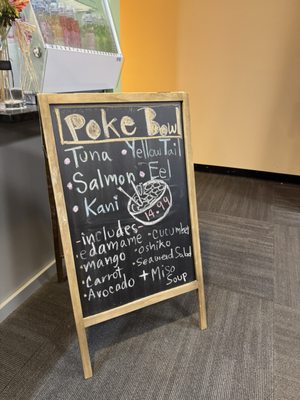 Poke Bowl
Tuna • Yellow Tail
• Salmon • Eel
• Kani 14.99
-includes-
• edamame • Cucumber
• mango • oshiko
• Carrot • Seaweed Salad
• Avocado + Miso
Soup